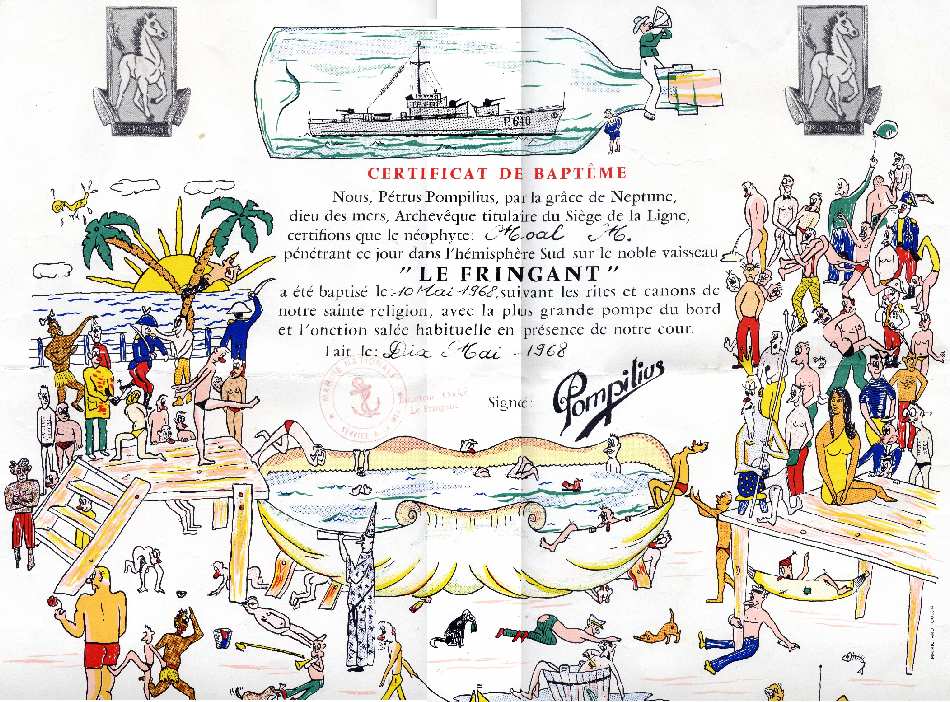 P 640
CERTIFICAT DE BAPTÊME
Nous, Pétrus Pompilius, par la grâce de Neptune,
dieu des mers, Archevêque titulaire du Siège de la Ligne,
certifions que le néophyte: Moal M.
pénétrant ce jour dans l'hémisphère Sud sur le noble vaisseau
" LE FRINGANT "
a été baptisé le 10 Mai 1968, suivant les rites et canons de
notre sainte religion, avec la plus grande pompe du bord
et l'onction salée habituelle en présence de notre cour.
Fait le: Dix Mai - 1968
Le Fringant
Signé: Pompilius